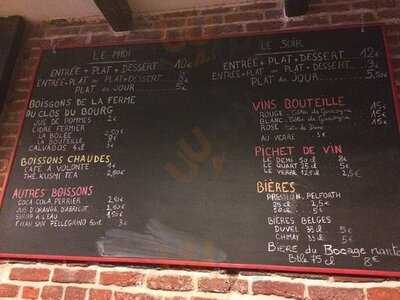 LE MIDI
ENTRÉE + PLAT + DESSERT 10€
ENTRÉE + PLAT OU PLAT + DESSERT 8€
PLAT DU JOUR 5€
BOISSONS DE LA FERME
DU CLOS DU BOURG
JUS DE POMMES 2€
CIDRE FERMIER
LA BOLÉE 2,50€
LA BOUTEILLE
CALVADOS 4cl 3€
BOISSONS CHAUDES
CAFÉ A VOLONTÉ 1€
THÉ KUSMI TEA 2,50€
AUTRES BOISSONS
COCA COLA, PERRIER 2,50€
JUS D'ORANGE, D'ABRICOT 2,50€
SIROP A L'EAU 1,50€
SAN PELLEGRINO 50cl 3€
LE SOIR
ENTRÉE + PLAT + DESSERT 12€
ENTRÉE + PLAT OU PLAT + DESSERT
PLAT DU JOUR 5,50€
VINS BOUTEILLE
ROUGE Côtes de Gascogne 15€
BLANC Côtes de Gascogne 15€
ROSÉ 15€
AU VERRE 3€
PICHET DE VIN
LE DEMI 50cl 8€
LE QUART 25cl 5€
LE VERRE 12,5cl 2,5€
BIÈRES
PRESSION PELFORTH
25 cl 2,5€
50 cl 5€
BIÈRES BELGES
DUVEL 33cl 5€
CHIMAY 33cl 5€
BIÈRE du Bocage
Btlle 75cl 8€